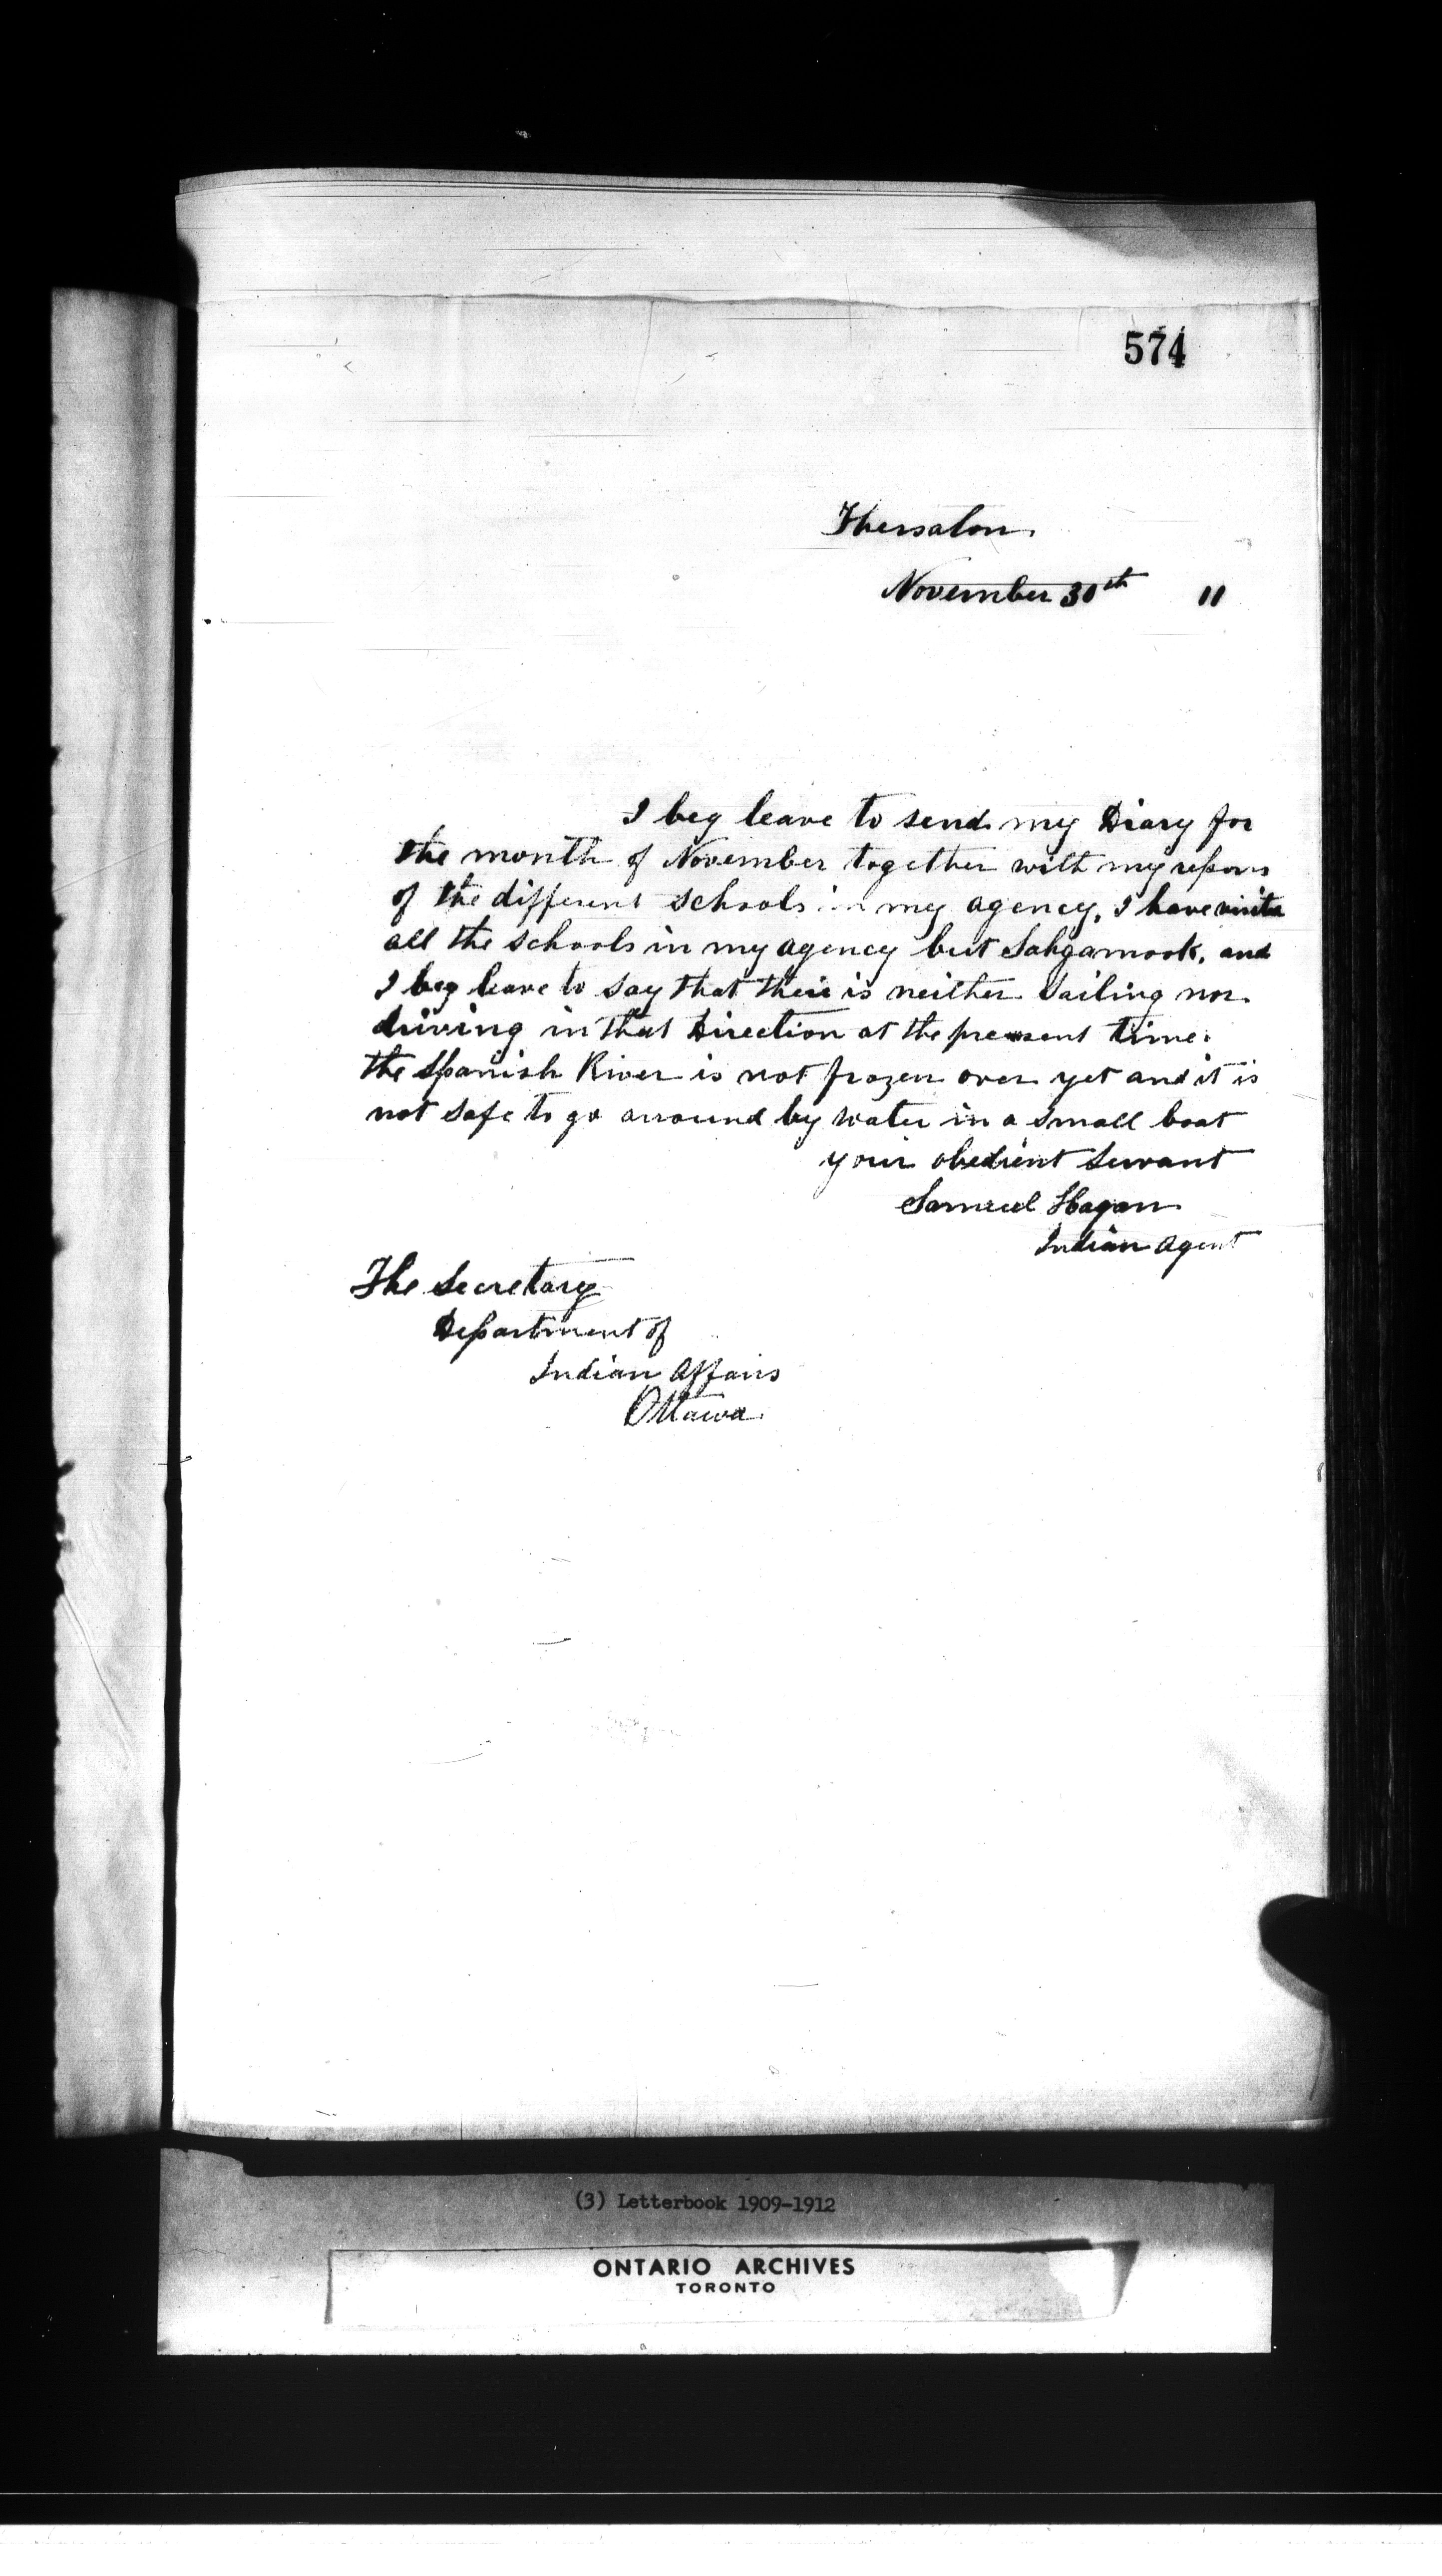 574
Thessalon.
November 30th 11
I beg leave to send my Diary for
the month of November together with my repors
of the different schools in my agency. I have visite
all the schools in my agency but Sahgamook. and
I beg leave to say that their is neither Sailing nor
driving in that Direction at the present time.
the Spanish River is not frozen over yet and it is
not safe to go arround by water in a small boat
your obedient servant
Samuel Hagan
Indian Agent
The Secretary
Department of
Indian Affairs
Ottawa.
(3) Letterbook 1909-1912
ONTARIO ARCHIVES
TORONTO